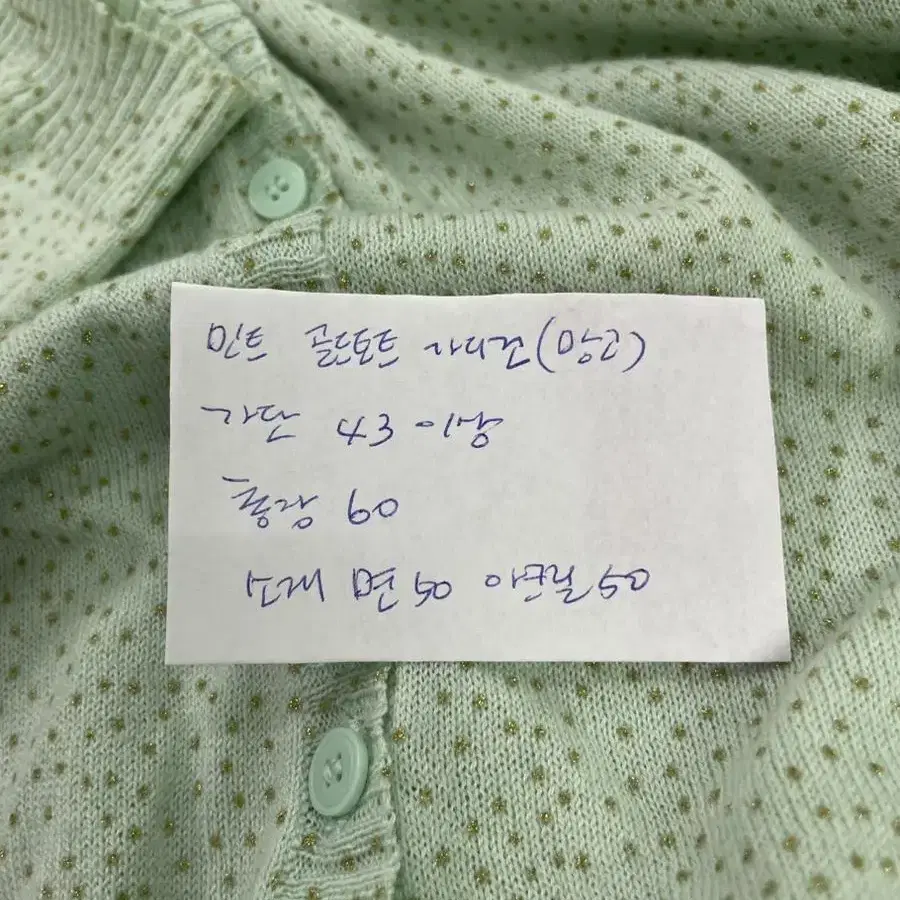 민트 골드도트 가디건(망고)
가단 43 이상
총장 60
소재 면50 아크릴50